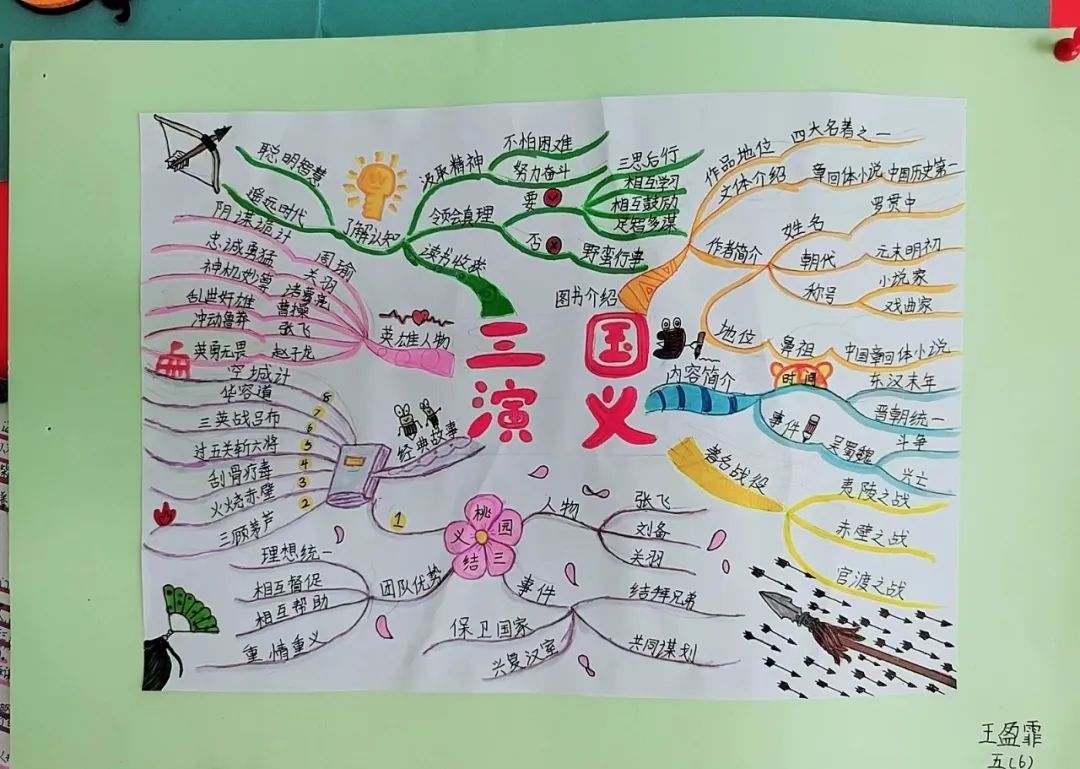 三国
演义
图书介绍
作品地位
四大名著之一
文体介绍
章回体小说
中国历史第一
作者简介
姓名
罗贯中
朝代
元末明初
称号
小说家
戏曲家
地位
鼻祖
中国章回体小说
内容简介
时间
东汉末年
晋朝统一
事件
吴蜀魏
斗争
兴亡
著名战役
夷陵之战
赤壁之战
官渡之战
经典故事
1
桃园三结义
人物
张飞
刘备
关羽
事件
结拜兄弟
共同谋划
保卫国家
兴复汉室
团队优势
理想统一
相互督促
相互帮助
重情重义
2
三顾茅芦
3
火烧赤壁
4
刮骨疗毒
5
过五关斩六将
6
三英战吕布
7
华容道
8
空城计
英雄人物
周瑜
阴谋诡计
关羽
忠诚勇猛
诸葛亮
神机妙算
曹操
乱世奸雄
张飞
冲动鲁莽
赵子龙
英勇无畏
读书收获
了解认知
聪明智慧
遥远时代
汲取精神
不怕困难
努力奋斗
领会真理
要
三思后行
相互学习
相互鼓励
足智多谋
否
野蛮行事
王盈霏
五(6)